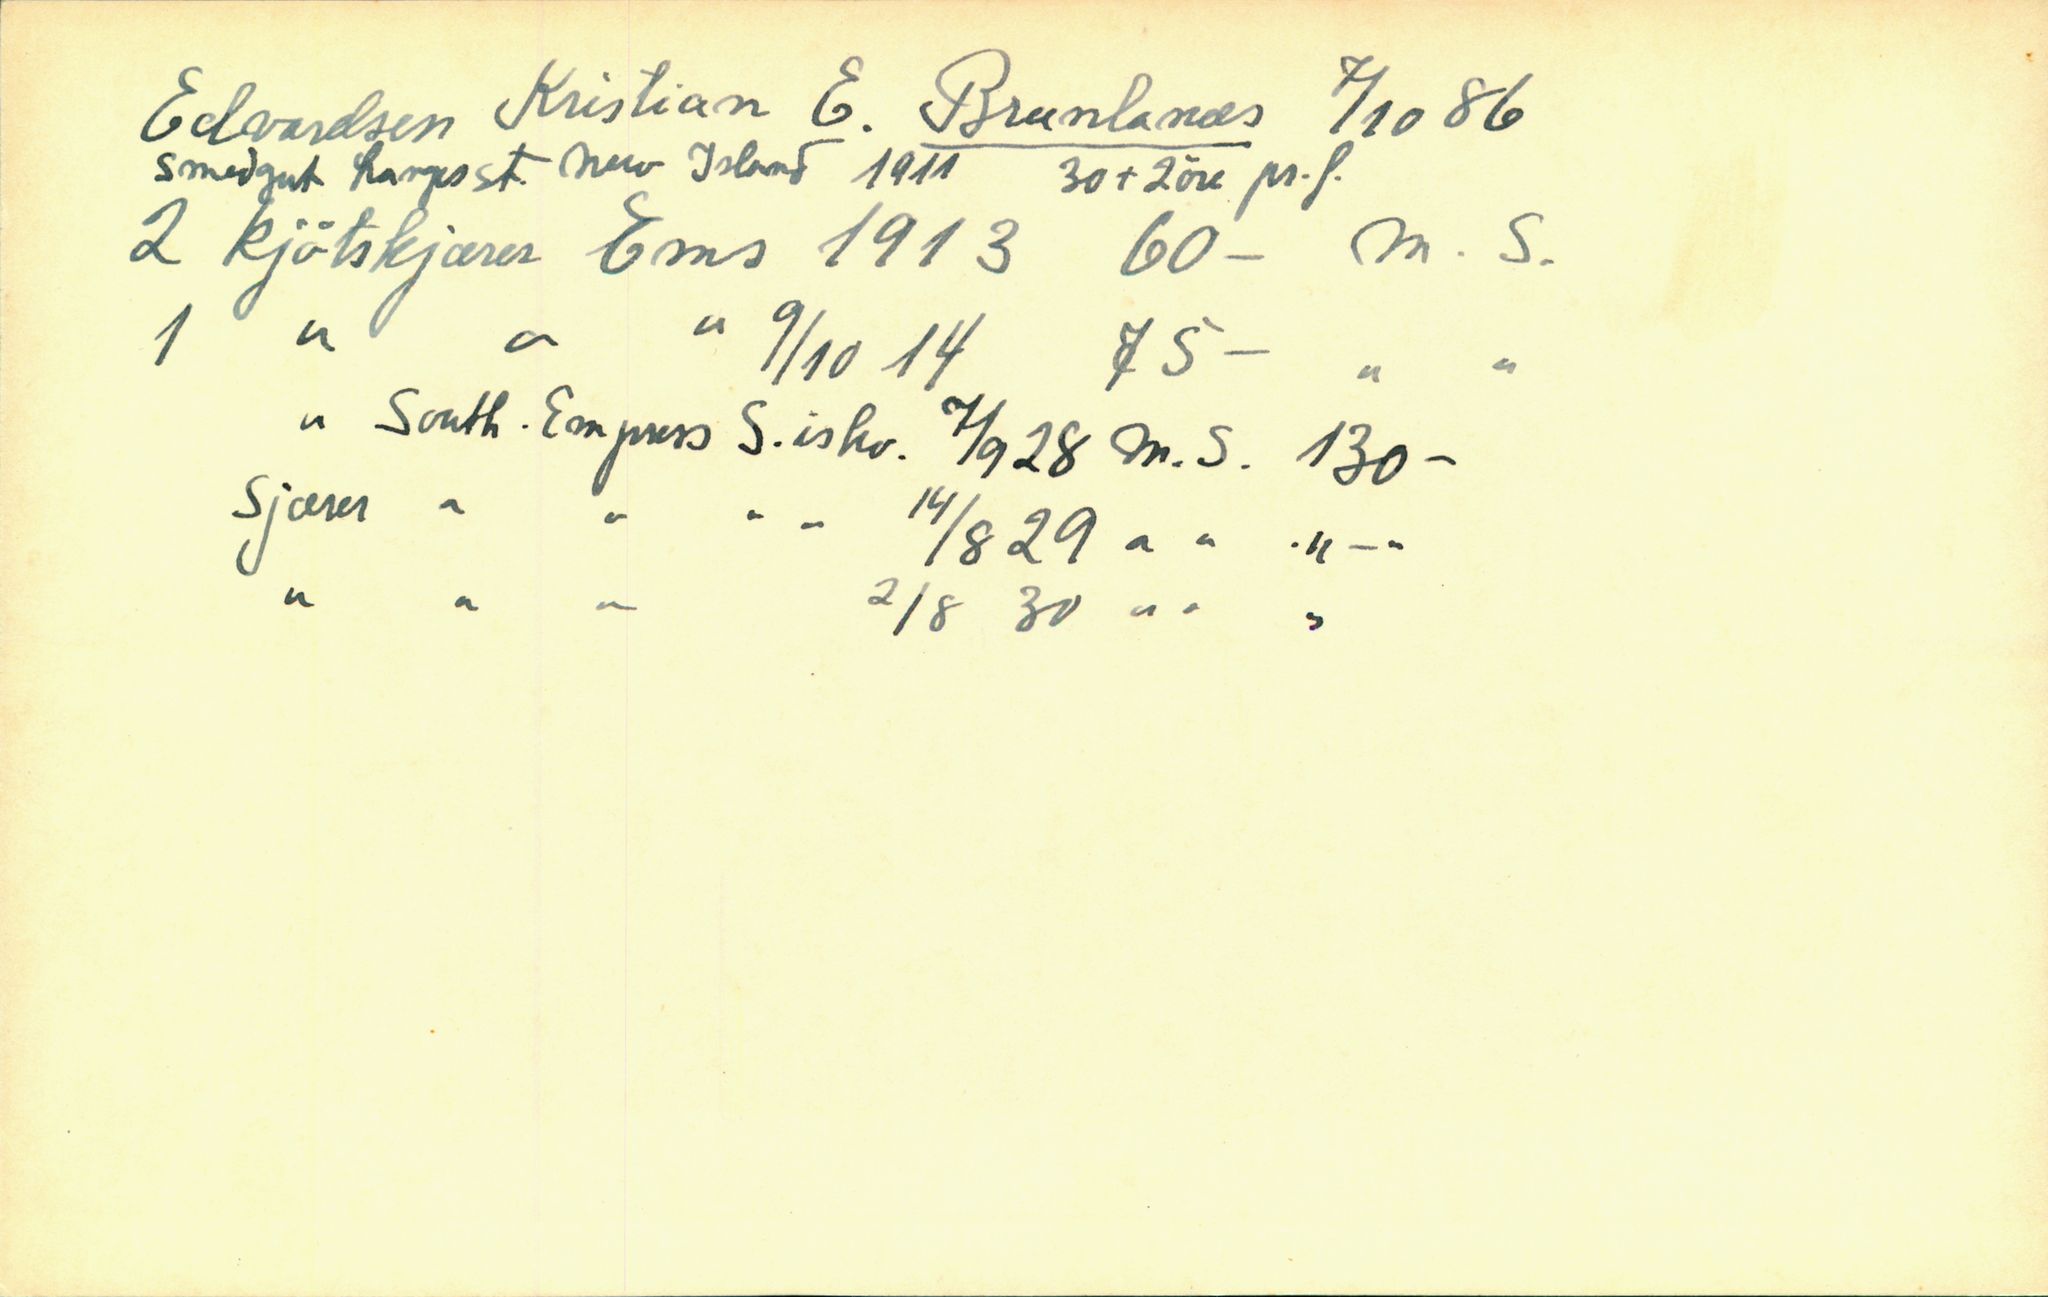 Edvardsen Kristian E. Brunlanæs 7/10 86
smedgut st. New Island 1911 30 + 2 öre pr. f.
2 kjötskjærer Ems 1913 60 - M. S.
1 " " " 9/10 14 75 - " "
" South. Empress S. ishv. 7/9 28 M. S. 130 -
Sjærer " " " " 14/8 29 " " " - "
" " " 2/8 30 " " "